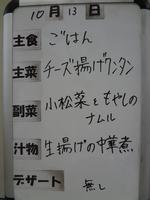 10月13日
主食 ごはん
主菜 チーズ揚げワンタン
副菜 小松菜ともやしの
ナムル
汁物 生揚げの中華煮
デザート 無し